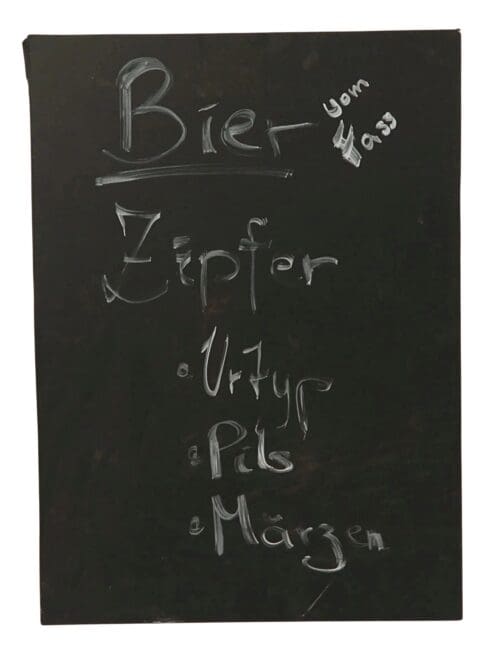 Bier
vom
Fass
Zipfer
• Urtyp
• Pils
• Märzen